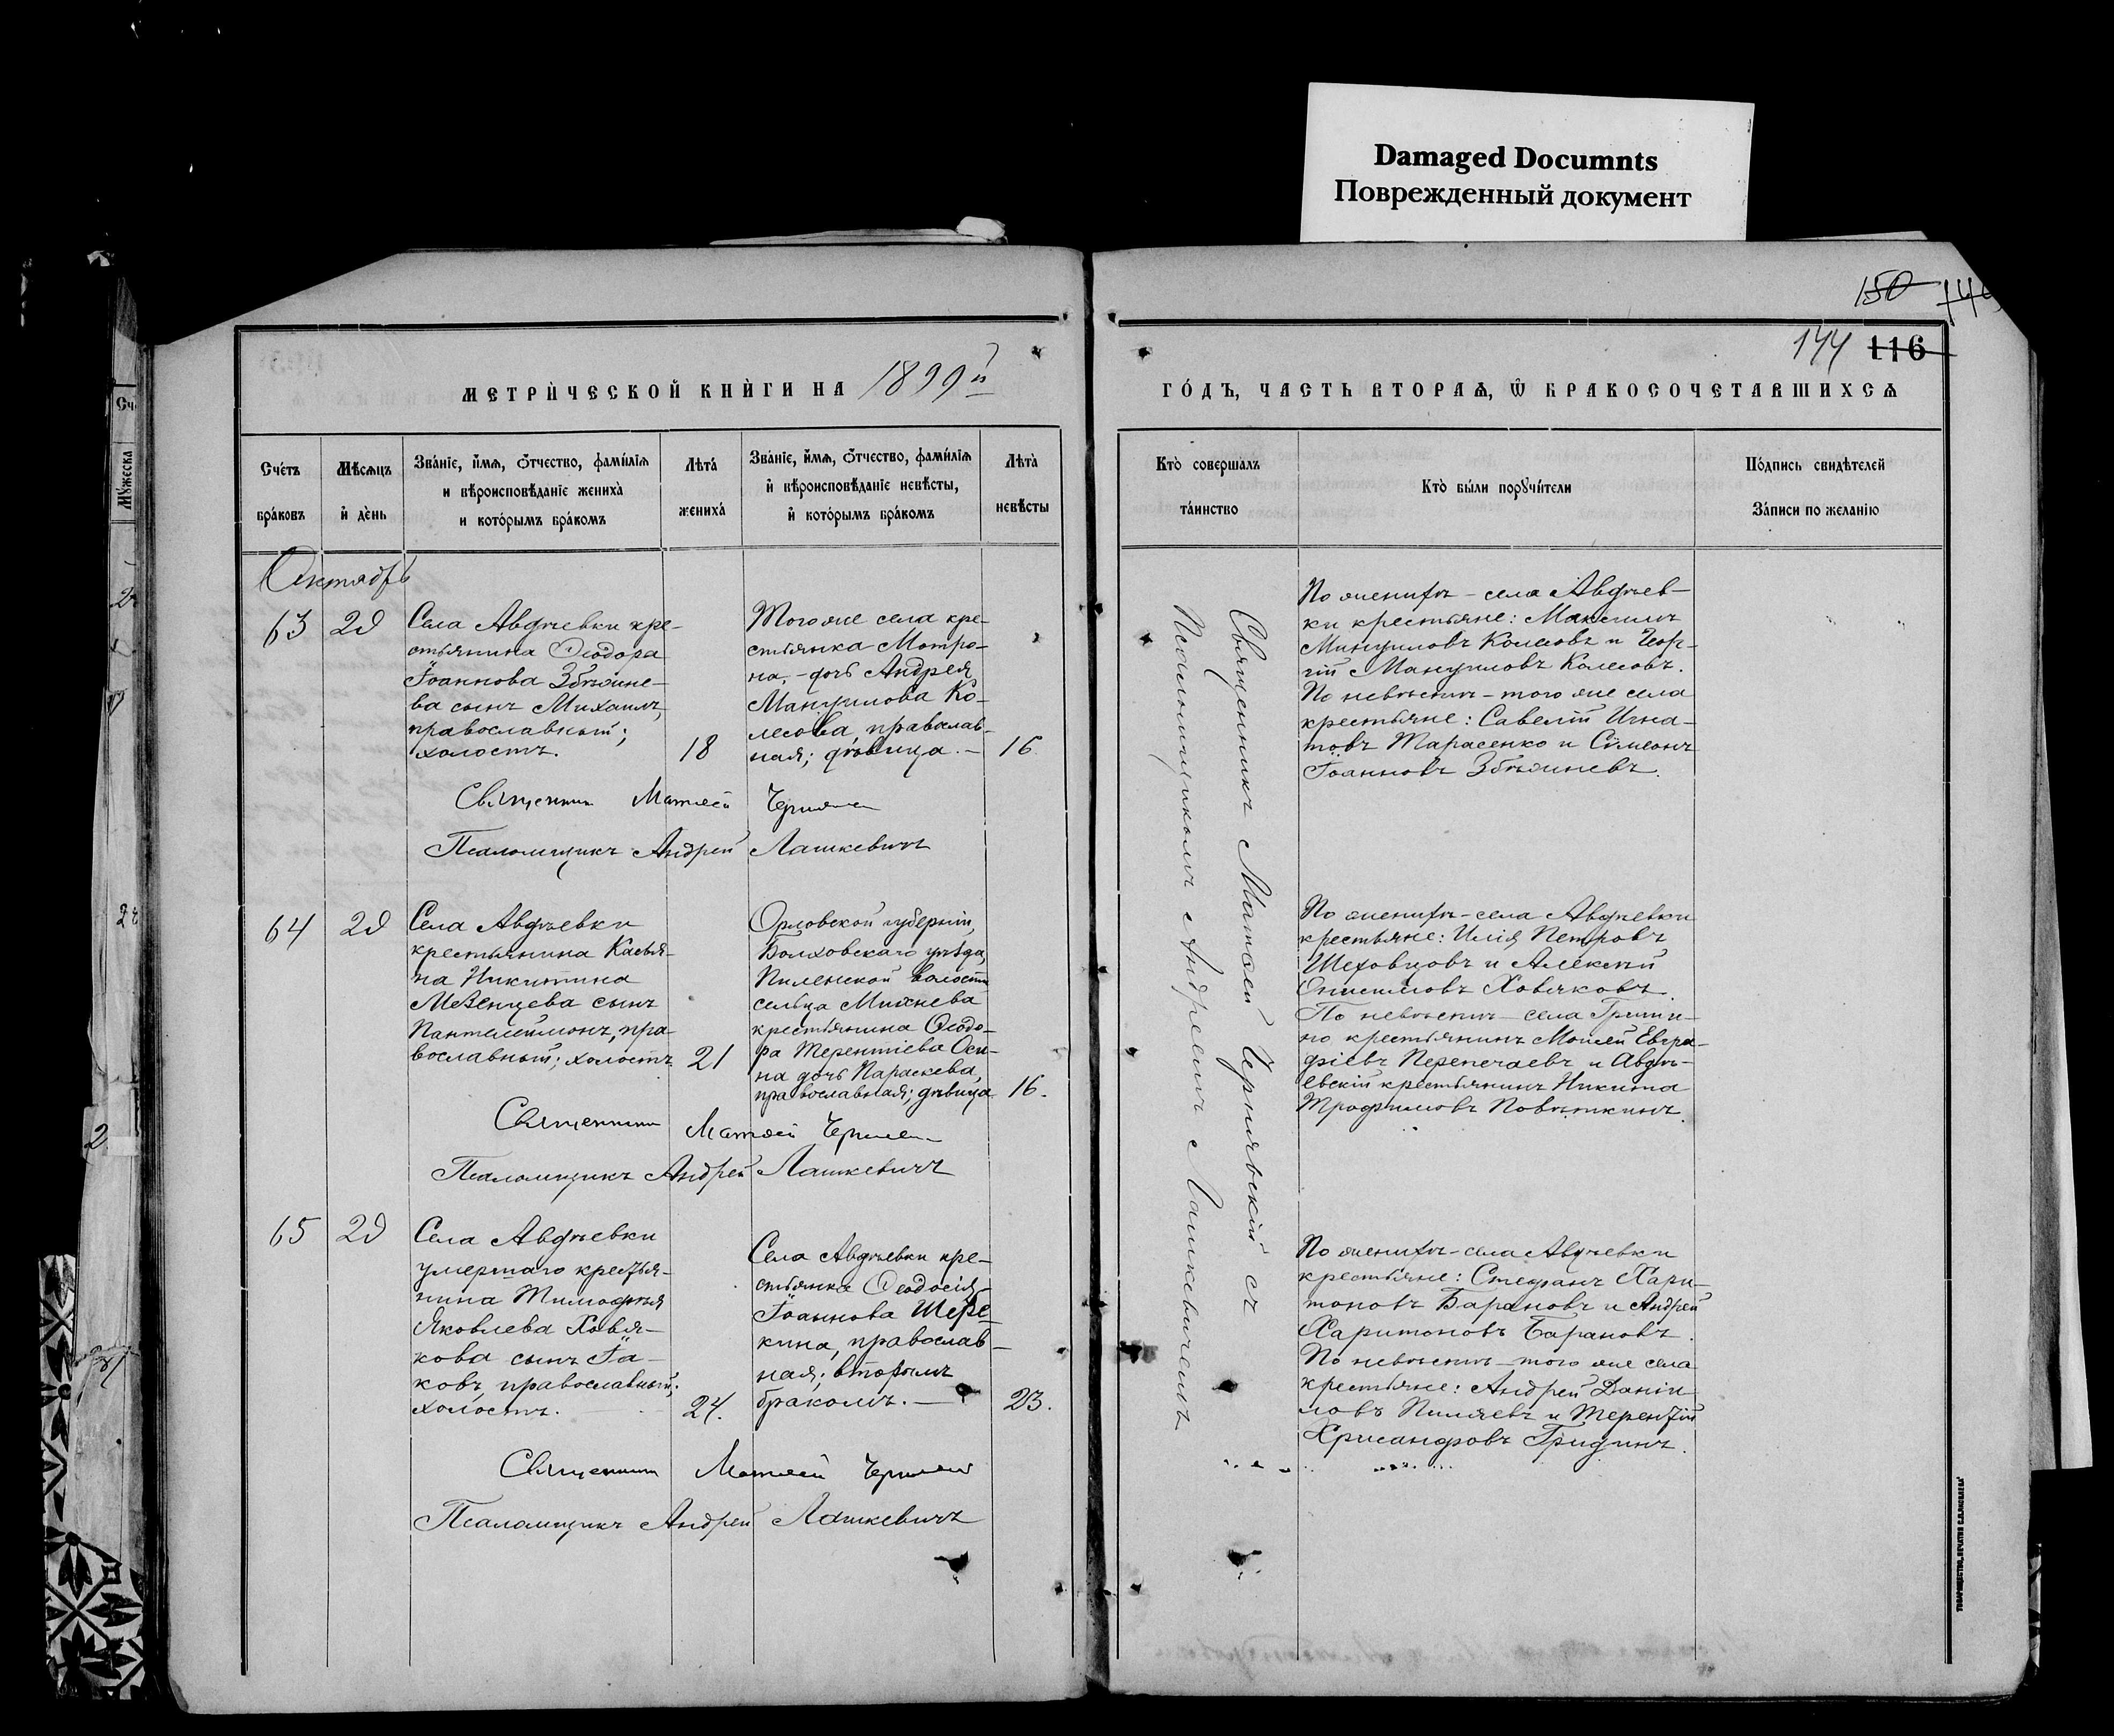 Damaged Documnts
Поврежденный документ
150
144 116
МЕТРИЧЕСКОЙ КНИГИ НА 1899й
ГОДЪ, ЧАСТЬ ВТОРАѦ, Ѿ БРАКОСОЧЕТАВШИХСѦ
Счетъ браковъ
Мѣсѧцъ и день
Званіе, имѧ, отчество, фамилія и вѣроисповѣданіе жениха и которымъ бракомъ
Лѣта жениха
Званіе, имѧ, отчество, фамилія и вѣроисповѣданіе невѣсты, и которымъ бракомъ
Лѣта невѣсты
Кто совершалъ таинство
Кто были поручители
Подпись свидѣтелей записи по желанію
Октябрь
63
20
Села Авдѣевки кре-
стьянина Ѳеодора
Іоаннова Збѣжне-
ва сынъ Михаилъ,
православный;
холостъ.
18
Того же села кре-
стьянка Матро-
на, - дочь Андрея
Мануилова Ко-
лесова, православ-
ная; дѣвица. -
16
Священникъ Матѳей
Псаломщикъ Андрей Лашкевичъ
По женихѣ - села Авдѣев-
ки крестьяне: Максимъ
Мануиловъ Колесовъ и Геор-
гій Мануиловъ Колесовъ.
По невѣстѣ - того же села
крестьяне: Савелій Игна-
товъ Тарасенко и Сѵмеонъ
Іоанновъ Збѣжневъ.
64
20
Села Авдѣевки
крестьянина Касья-
на Никитина
Мезенцева сынъ
Пантелеимонъ, пра-
вославный; холостъ.
21
Орловской губерніи,
Болховскаго уѣзда,
волости
сельца Михнева
крестьянина Ѳеодо-
ра Терентіева Оси-
на дочь Параскева,
православная; дѣвица
16.
Священникъ Матѳей
Псаломщикъ Андрей Лашкевичъ
По женихѣ - села Авдѣевки
крестьяне: Илія Петровъ
Шеховцовъ и Алексѣй
Онисимовъ Ховяковъ.
По невѣстѣ - села Гриши-
но крестьянинъ Моисей Евгра-
фіевъ Перепечаевъ и Авдѣ-
евскій крестьянинъ Никита
Трофимовъ Повѣткинъ.
65
20
Села Авдѣевки
умершаго крестья-
нина Тимофѣя
Яковлева Ховя-
кова сынъ Іа-
ковъ, православный;
холостъ.
24.
Села Авдѣевки кре-
стьянка Ѳеодосія
Іоаннова Шере-
кина, православ-
ная; вторымъ
бракомъ. -
23.
Священникъ Матѳей
Псаломщикъ Андрей Лашкевичъ
По женихѣ - села Авдѣевки
крестьяне: Стефанъ Хари-
тоновъ Барановъ и Андрей
Харитоновъ Барановъ.
По невѣстѣ - того же села
крестьяне: Андрей Даніи-
ловъ Пиляевъ и Терентій
Хрисанфовъ Гридинъ.
Священникъ Матѳей Чернявскій съ
Псаломщикомъ Андреемъ Лашкевичемъ